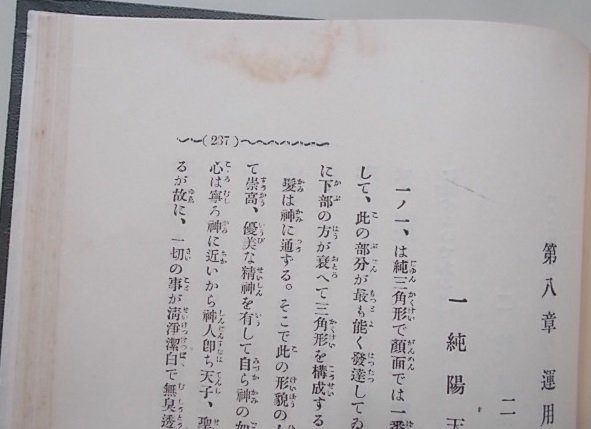 第八章 運用
二
一 純陽天
一ノ一、は純三角形で顔面では一番
して、此の部分が最も能く發達してゐ
に下部の方が衰へて三角形を構成する
髮は神に通ずる。そこで此の形貌の
て崇高、優美な精神を有して自ら神の如
心は寧ろ神に近いから神人卽ち天子、聖
るが故に、一切の事が淸淨潔白で無臭透
(237)